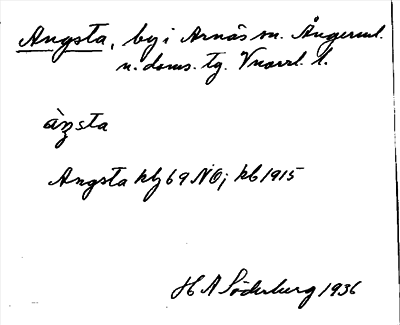 Angsta, by i Arnäs sn. Ångerml.
n. doms. tg. Vnorrl. l.
àŋsta
Angsta hbj 69 NO; kb 1915
H A Söderberg 1936